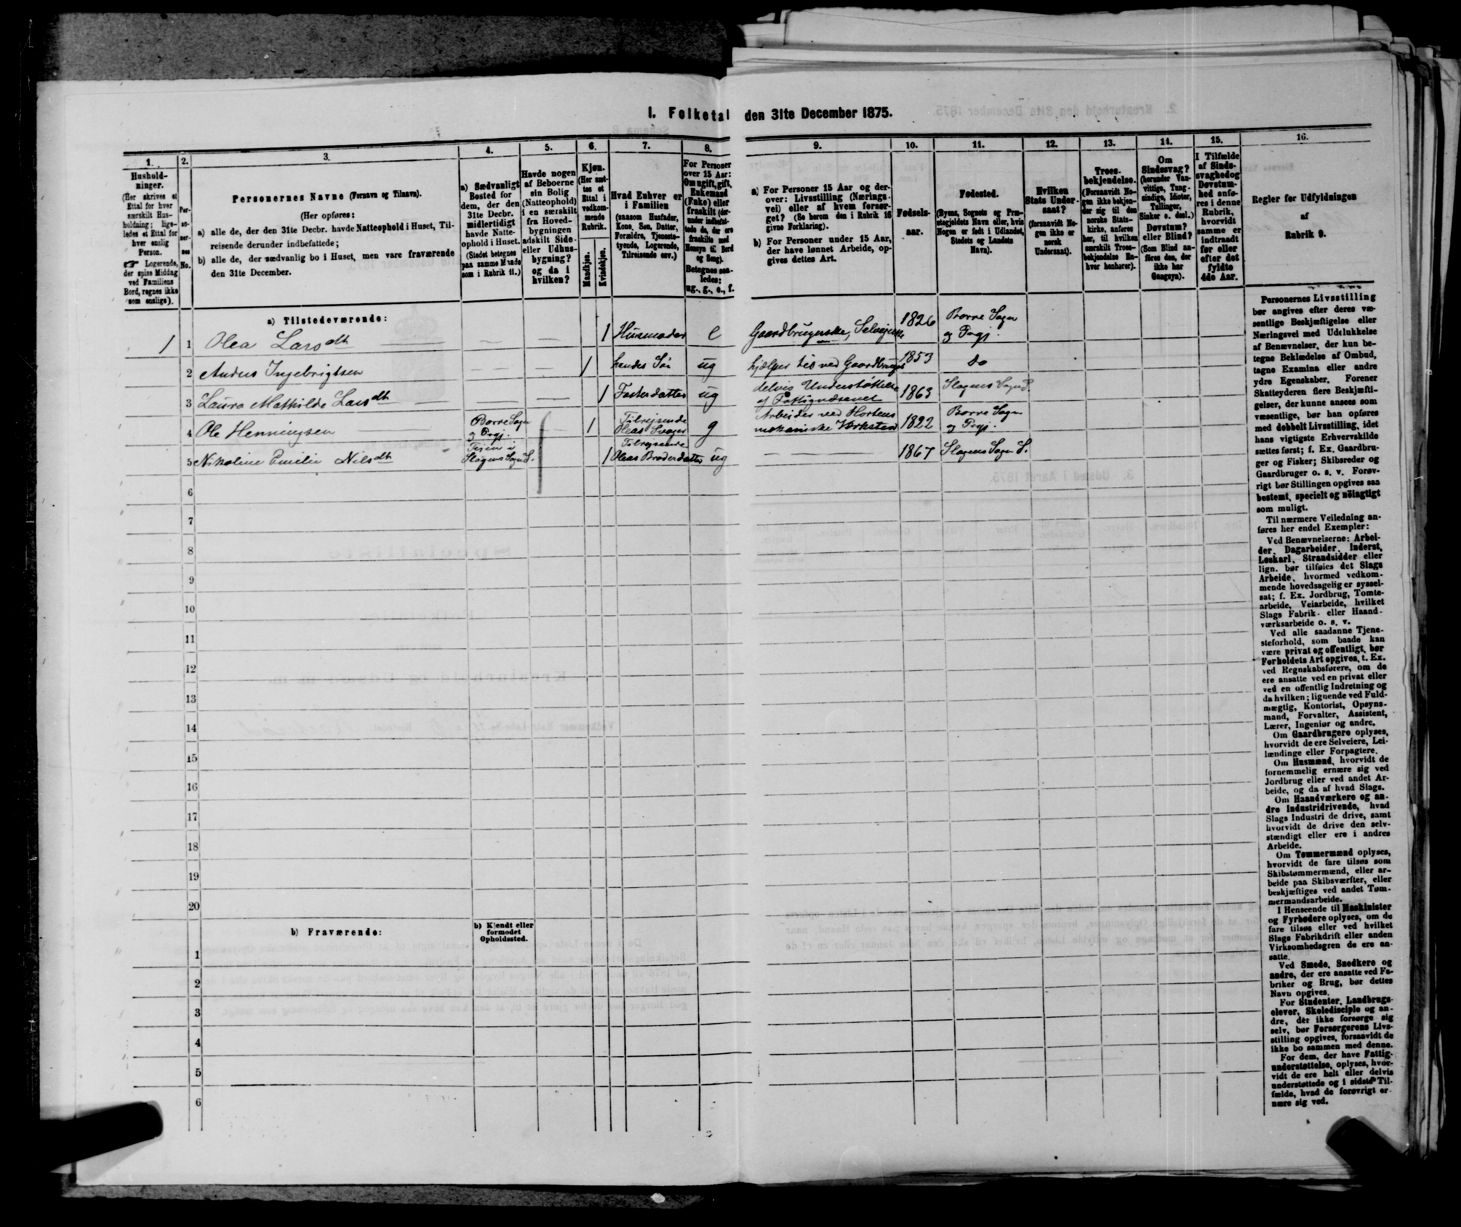 1. Folketal den 31te December 1875.
1.
Husholdninger.
(Her skrives et Ettal for hver særskilt Husholdning; ligeledes et Ettal for hver enslig Person.
Logerende, der spise Middag ved Familiens Bord, regnes ikke som enslige).
2.
Personernes No.
3.
Personernes Navne (Fornavn og Tilnavn).
(Her opføres:
a) alle de, der den 31te Decbr. havde Natteophold i Huset, Tilreisende derunder indbefattede;
b) alle de, der sædvanlig bo i Huset, men vare fraværende den 31te December.
4.
a) Sædvanligt Bosted for dem, der den 31te Decbr. midlertidigt havde Natteophold i Huset.
(Stedet betegnes paa samme Maade som i Rubrik 11.)
5.
Havde nogen af Beboerne sin Bolig (Natteophold) i en særskilt fra Hovedbygningen adskilt Side- eller Udhusbygning? og da i hvilken?
6.
Kjøn.
(Her sættes et Ettal i vedkommende Rubrik.
Mandkjøn.
Kvindekjøn.
7.
Hvad Enhver er i Familien
(saasom Husfader, Kone, Søn, Datter, Forældre, Tjenestetyende, Logerende, Tilreisende osv.)
8.
For Personer over 15 Aar: Om ugift, gift, Enkemand (Enke) eller fraskilt
Betegnes saaledes: ug., g., e., f.
9.
a) For Personer 15 Aar og derover: Livsstilling (Næringsvei) eller af hvem forsørget? (Se herom den i Rubrik 16 givne Forklaring).
b) For Personer under 15 Aar, der have lønnet Arbeide, opgives dettes Art.
10.
Fødselsaar.
11.
Fødested.
(Byens, Sognets og Præstegjeldets Navn eller, hvis Nogen er født i Udlandet, Stedets og Landets Navn).
12.
Hvilken Stats Undersaat?
(forsaavidt Nogen ikke er norsk Undersaat).
13.
Troesbekjendelse.
(Forsaavidt Nogen ikke bekjender sig til den norske Statskirke, anføres her, til hvilken Troesbekjendelse Enhver henhører).
14.
Om Sindssvag? (herunder Vanvittige, Tungsindige, Idioter, Tullinger, Sinker o. desl.) Døvstum? eller Blind?
(Som Blind anføres den, der ikke har Gangsyn).
15.
I Tilfælde af Sindssvaghed og Døvstumhed anføres i denne Rubrik, hvorvidt samme er indtraadt før eller efter det fyldte 4de Aar.
16.
Regler for Udfyldningen af Rubrik 9.
a) Tilstedeværende:
1 1 Olea Larsdt — — 1 Husmoder e Gaardbrugerske, Selveierske 1826 Borre Sogn og Prgj.
2 Anders Ingebrigtsen — — 1 hendes Søn ug hjælper til ved Gaardbruget 1853 do
3 Laura Mathilde Larsdt — — 1 Fosterdatter ug delvis Understøttelse af Fattigvæsenet 1863 Slagens Sogn S.
4 Ole Henningsen Borre Sogn og Prgj. 1 Tilreisende Oleas Svoger g Arbeider ved Hortens mekaniske Værksted 1822 Borre Sogn og Prgj.
5 Nikoline Emilie Nilsdt Slagens Sogn S. 1 Tilreisende Oleas Broderdatter ug — — 1867 Slagens Sogn S.
6
7
8
9
10
11
12
13
14
15
16
17
18
19
20
b) Fraværende:
b) Kjendt eller formodet Opholdssted.
1
2
3
4
5
6
Personernes Livsstilling
bør angives efter deres væ-
sentlige Beskjæftigelse eller
Næringsvei med Udelukkelse
af Benævnelser, der kun be-
tegne Beklædelse af Ombud,
tagne Examina eller andre
ydre Egenskaber. Forener
Skatteyderen flere Beskjæfti-
gelser, der kunne ansees som
væsentlige, bør han opføres
med dobbelt Livsstilling, idet
hans vigtigste Erhvervskilde
sættes først; f. Ex. Gaardbru-
ger og Fisker; Skibsreder og
Gaardbruger o. s. v. Forøv-
rigt bør Stillingen opgives saa
bestemt, specielt og nøiagtigt
som muligt.
Til nærmere Veiledning an-
føres her endel Exempler:
Ved Benævnelserne: Arbei-
der, Dagarbeider, Inderst,
Løskarl, Strandsidder eller
lign. bør tilføies det Slags
Arbeide, hvormed vedkom-
mende hovedsagelig er syssel-
sat; f. Ex. Jordbrug, Tomte-
arbeide, Veiarbeide, hvilket
Slags Fabrik- eller Haand-
værksarbeide o. s. v.
Ved alle saadanne Tjene-
steforhold, som baade kan
være privat og offentligt, bør
Forholdets Art opgives, t. Ex.
ved Regnskabsførere, om de
ere ansatte ved en privat eller
ved en offentlig Indretning og
da hvilken; lignende ved Fuld-
mægtig, Kontorist, Opsyns-
mand, Forvalter, Assistent,
Lærer, Ingeniør og andre.
Om Gaardbrugere oplyses,
hvorvidt de ere Selveiere, Lei-
lændinge eller Forpagtere.
Om Husmænd, hvorvidt de
fornemmelig ernære sig ved
Jordbrug eller ved andet Ar-
beide, og da af hvad Slags.
Om Haandværkere og an-
dre Industridrivende, hvad
Slags Industri de drive, samt
hvorvidt de drive den selv-
stændigt eller ere i andres
Arbeide.
Om Tømmermænd oplyses,
hvorvidt de fare tilsøs som
Skibstømmermænd, eller ar-
beide paa Skibsværfter, eller
beskjæftiges ved andet Tøm-
mermandsarbeide.
I Henseende til Maskinister
og Fyrbødere oplyses, om de
fare tilsøs eller ved hvilket
Slags Fabrikdrift eller anden
Virksomhedsgren de ere an-
satte.
Ved Smede, Snedkere og
andre, der ere ansatte ved Fa-
briker og Brug, bør dettes
Navn opgives.
For Studenter, Landbrugs-
elever, Skoledisciple og an-
dre, der ikke forsørge sig
selv, bør Forsørgerens Livs-
stilling opgives, forsaavidt de
ikke bo sammen med denne.
For dem, der have Fattig-
understøttelse, oplyses, hvor-
vidt de ere helt eller delvis
understøttede og i sidste Til-
fælde, hvad de forøvrigt er-
nære sig ved.